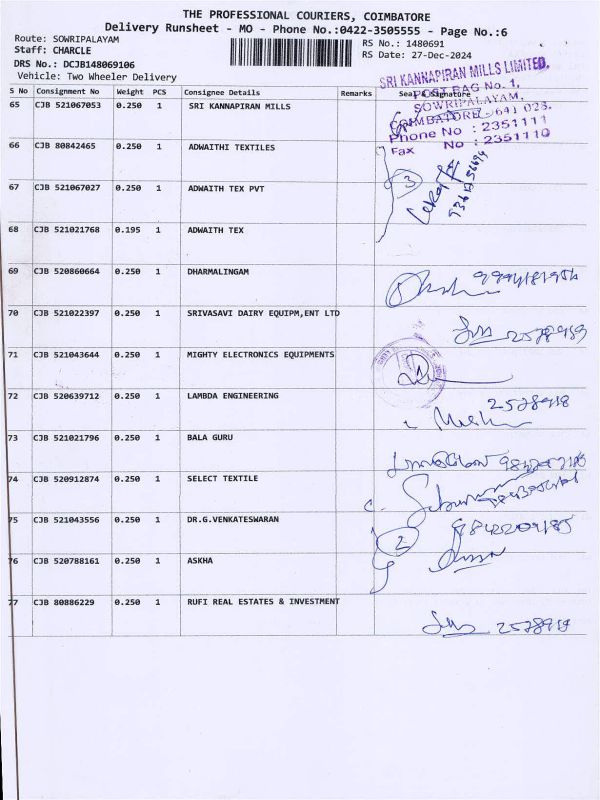 THE PROFESSIONAL COURIERS, COIMBATORE
Delivery Runsheet - MO - Phone No.:0422-3505555 - Page No.:6
Route: SOWRIPALAYAM
RS No.: 1480691
Staff: CHARCLE
RS Date: 27-Dec-2024
DRS No.: DCJB148069106
Vehicle: Two Wheeler Delivery
S No Consignment No Weight PCS Consignee Details Remarks Seal & Signature
SRI KANNAPIRAN MILLS LIMITED.
POST BAG No. 1,
SOWRIPALAYAM,
COIMBATORE - 641 028.
Phone No : 2351111
Fax No : 2351110
65 CJB 521067053 0.250 1 SRI KANNAPIRAN MILLS
66 CJB 80842465 0.250 1 ADWAITHI TEXTILES
67 CJB 521067027 0.250 1 ADWAITH TEX PVT
3
68 CJB 521021768 0.195 1 ADWAITH TEX
69 CJB 520860664 0.250 1 DHARMALINGAM
70 CJB 521022397 0.250 1 SRIVASAVI DAIRY EQUIPM,ENT LTD
2578919
71 CJB 521043644 0.250 1 MIGHTY ELECTRONICS EQUIPMENTS
72 CJB 520639712 0.250 1 LAMBDA ENGINEERING
2578918
73 CJB 521021796 0.250 1 BALA GURU
74 CJB 520912874 0.250 1 SELECT TEXTILE
75 CJB 521043556 0.250 1 DR.G.VENKATESWARAN
9842209185
2
76 CJB 520788161 0.250 1 ASKHA
77 CJB 80886229 0.250 1 RUFI REAL ESTATES & INVESTMENT
2578919